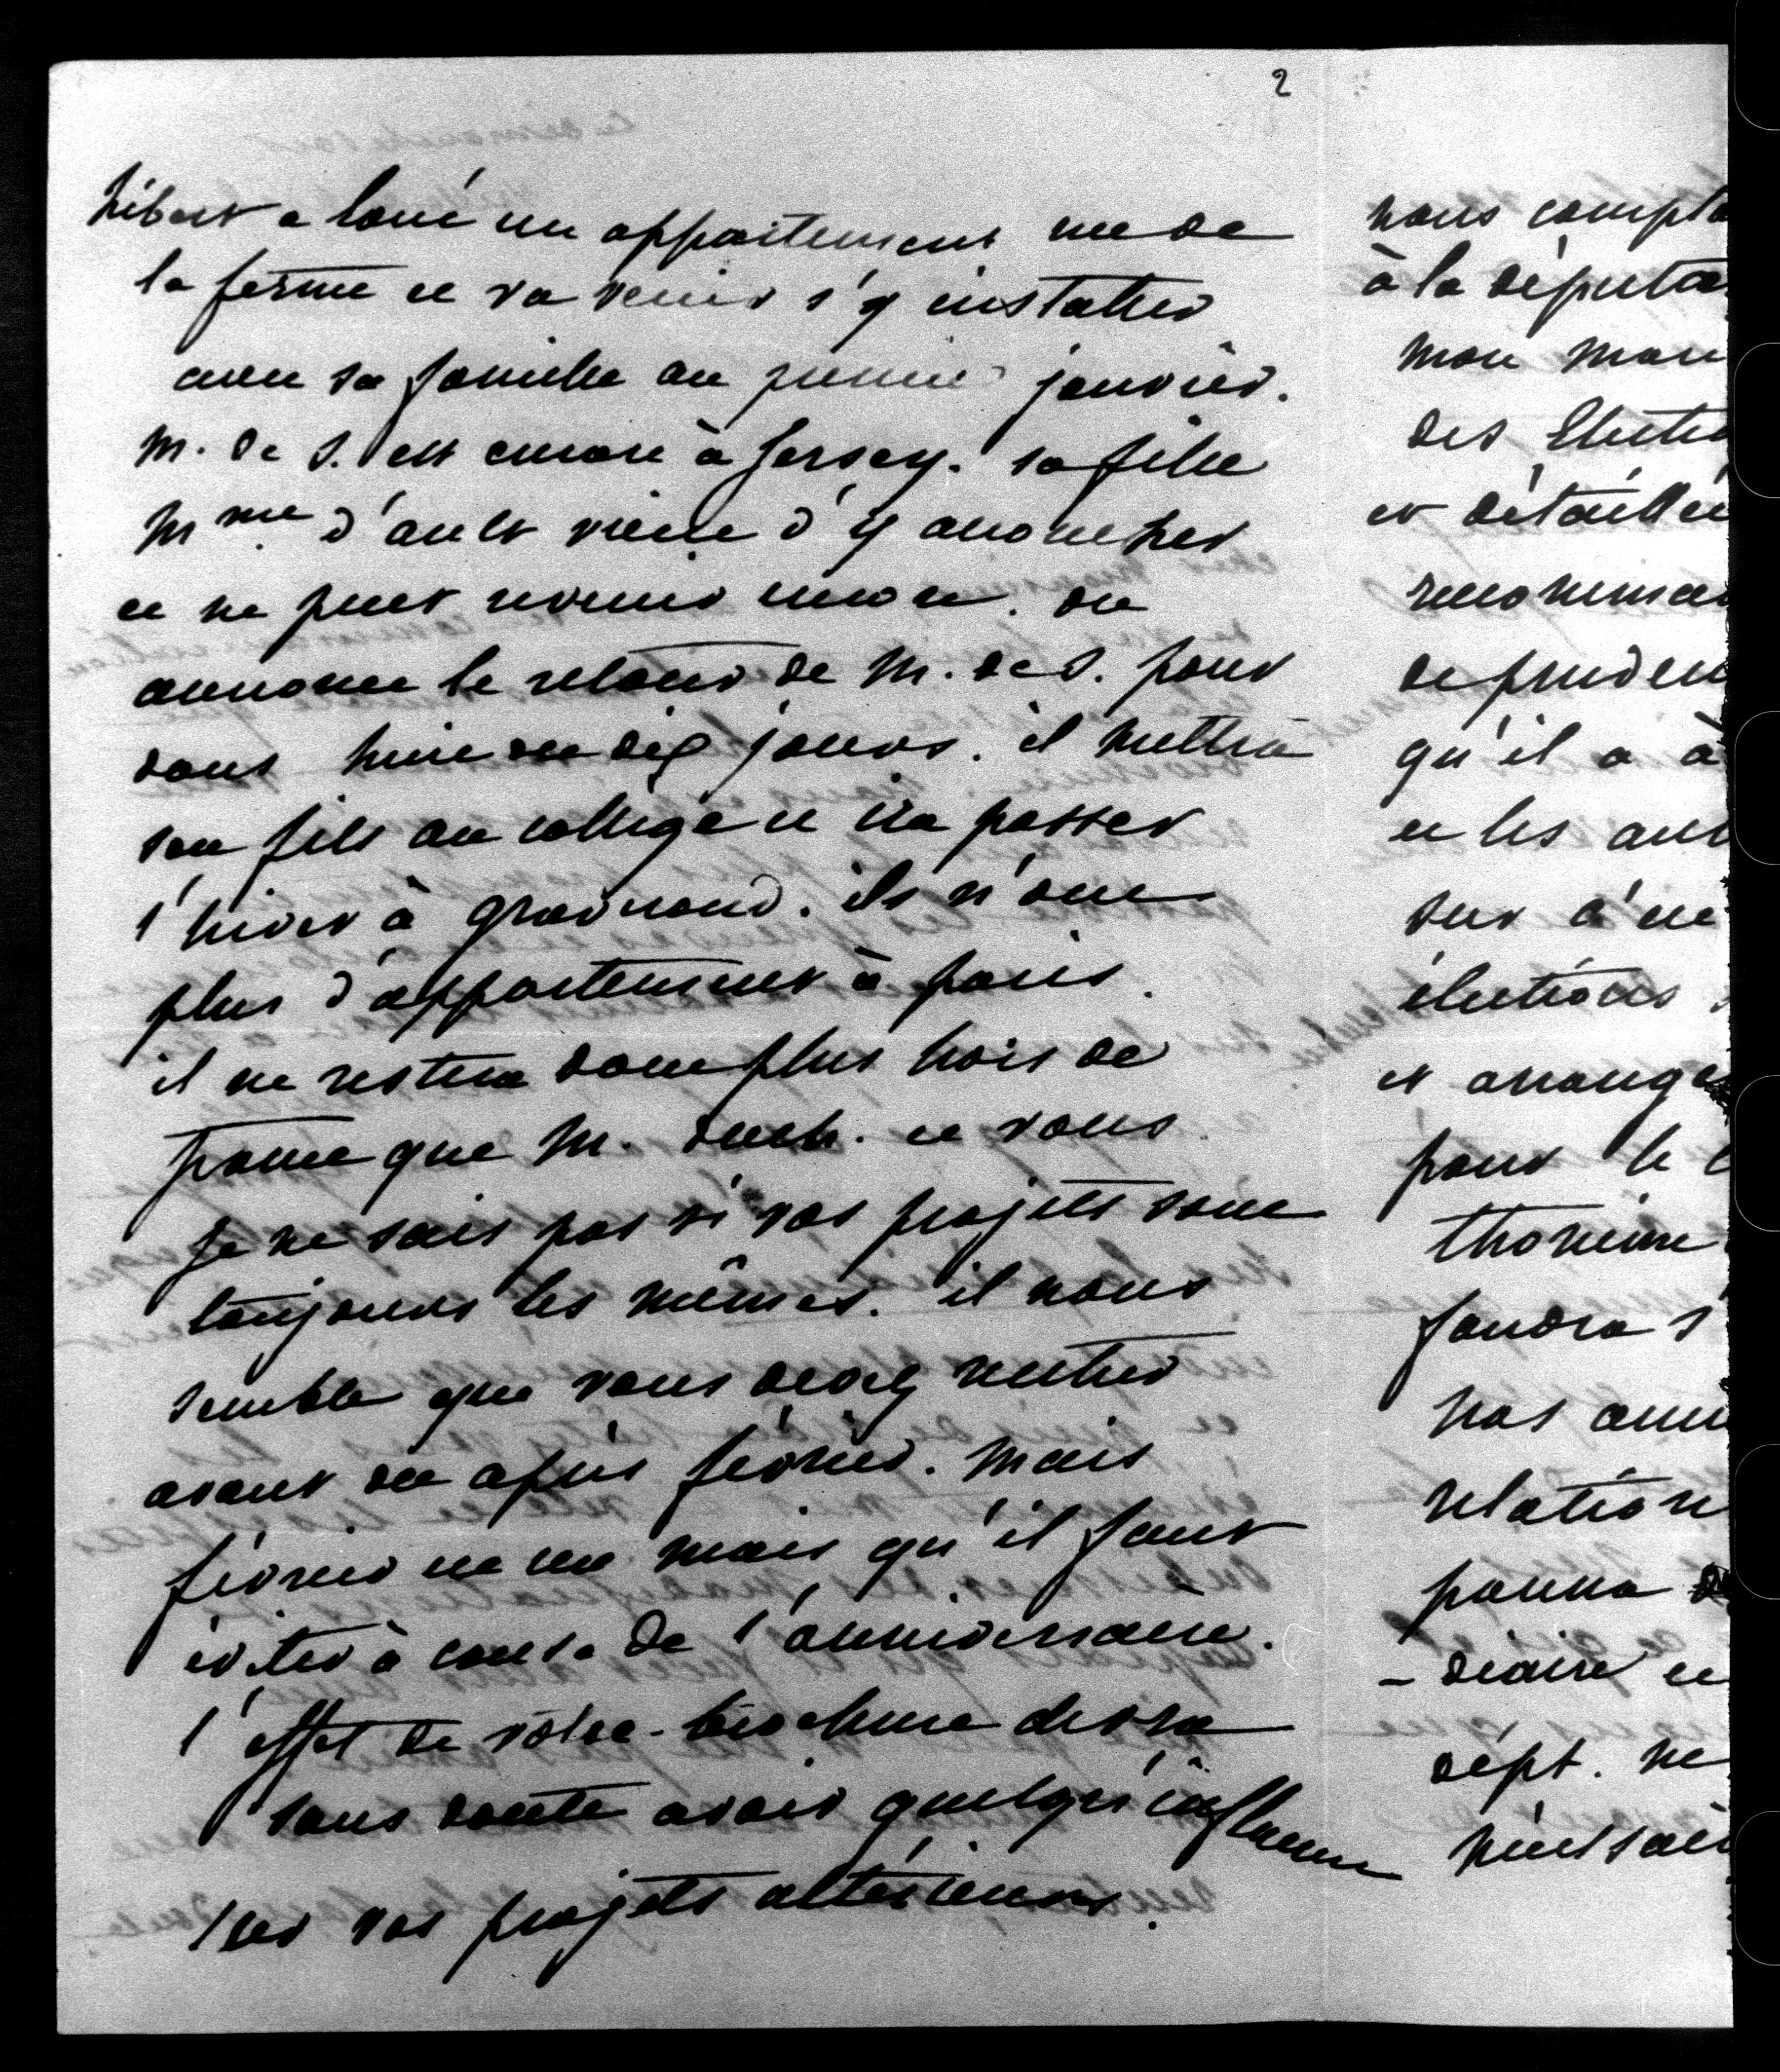 2
hébert a loué un appartement rue de
la ferme et va venir s'y installer
avec sa famille au premier janvier.
M. de S. est encore à Jersey. sa fille
Mme d'ault vient d'y accoucher
et ne peut revenir encore. on
annonce le retour de M. de S. pour
dans huit ou dix jours. il mettra
son fils au collège et ira passer
l'hiver à gravrand. ils n'ont
plus d'appartement à paris.
il ne restera donc plus hors de
france que M. duch. et vous.
Je ne sais pas si vos projets sont
toujours les mêmes. il nous
semble que vous devez rentrer
avant ou après février. mais
février est un mois qu'il faut
éviter à cause de l'anniversaire.
l'effet de votre brochure devra
sans doute avoir quelqu'influence
sur vos projets ultérieurs.
nous compt
à la députa
mon mari
des Electio
et détaillée
recommen
de pruden
qu'il a à
et les
sur
élections
et arrange
pour le
thomine
faudra s'
nos amis
relation
pourra
- diaire et
dépt. ne
nécessai